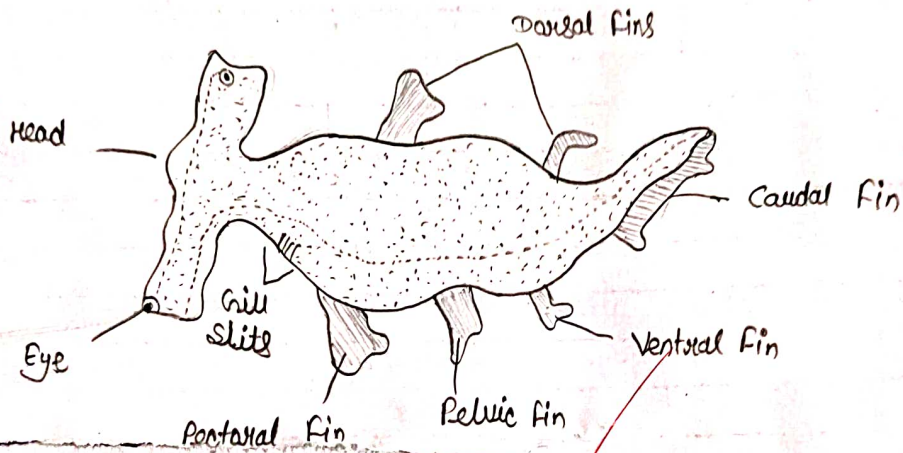 Dorsal Fins
Head
Caudal Fin
Gill
Slits
Eye
Ventral Fin
Pectoral Fin
Pelvic Fin